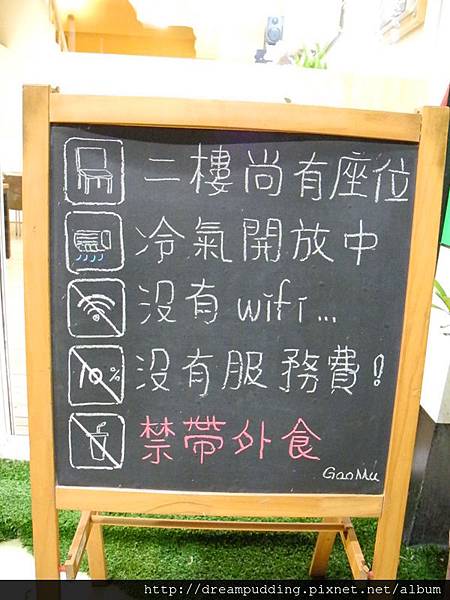 二樓尚有座位
冷氣開放中
沒有 wifi...
10%
沒有服務費!
禁帶外食
GaoMu
http://dreampudding.pixnet.net/album